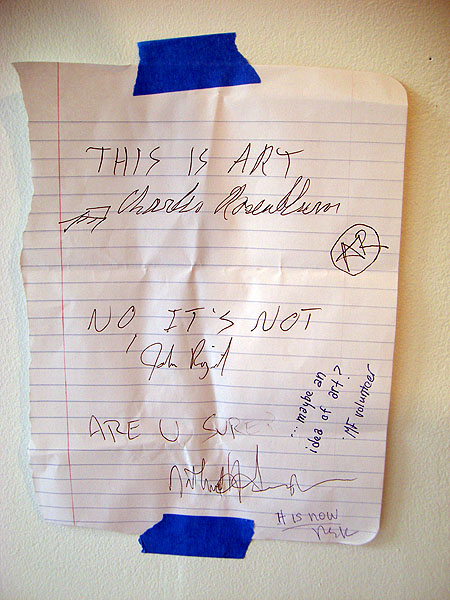 THIS IS ART
Charles Rosenblum
AR
NO, IT'S NOT
John
ARE U SURE?
...maybe an
idea of art?
MF volunteer
It is now